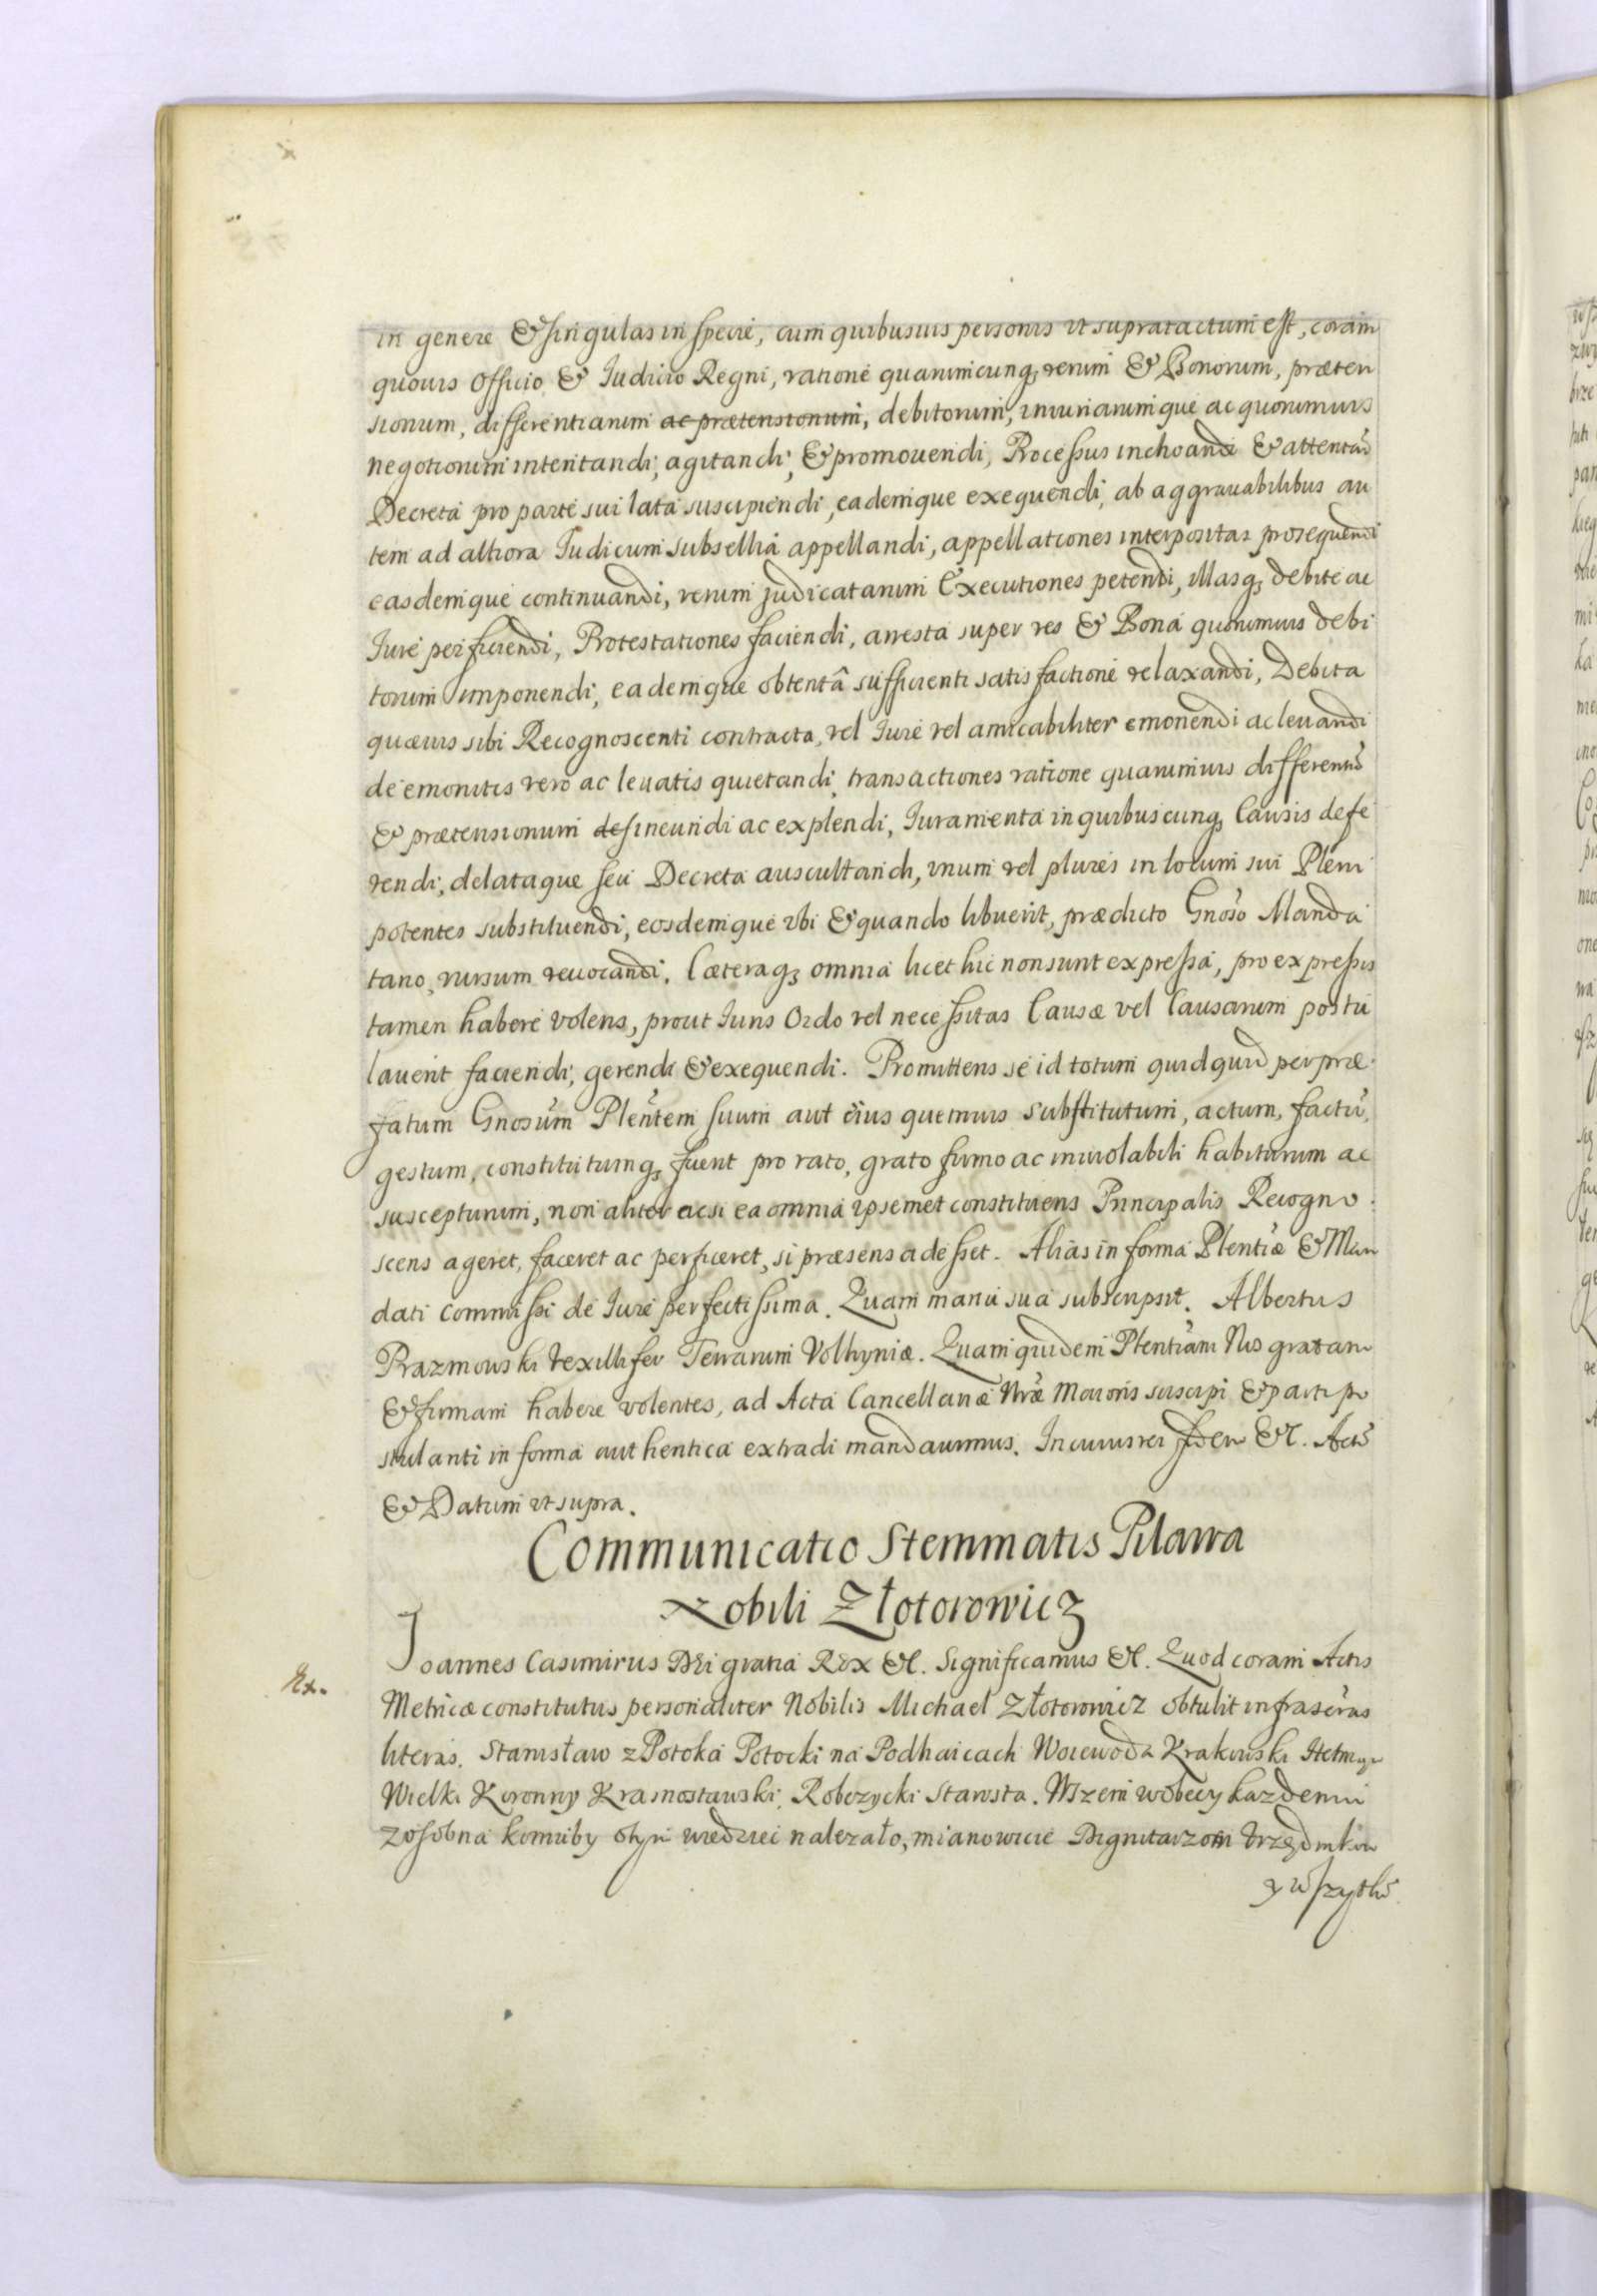 in genere & singulas in specie, cum quibusuis personis vt supratactum est, coram
quouis Officio & Iudicio Regni, ratione quarumcunq, rerum & Bonorum, præten
sionum, differentiarum ac prætensionum, debitorum, iniuriarumque ac quorumuis
negotiorum intentandi, agitandi, & promouendi, Processus inchoandi & attentãd
Decreta pro parte sui lata suscipiendi, eademque exequendi, ab aggrauabilibus au
tem ad altiora Iudicum subsellia appellandi, appellationes interpositas prosequendi
easdemque continuandi, rerum judicatarum Executiones petendi, illasq, debite ac
Iure perficiendi, Protestationes faciendi, arresta super res & Bona quorumuis debi
torum imponendi, eademque obtentâ sufficienti satisfactione relaxandi, Debita
quæuis sibi Recognoscenti contracta, vel Iure vel amicabiliter emonendi ac leuandi
de emonitis vero ac leuatis quietandi, transactiones ratione quarumuis differentiũ
& prætensionum de ineundi ac explendi, Iuramenta in quibuscunq, Causis defe
rendi, delataque seu Decreta auscultandi, vnum vel plures in locum sui Pleni
potentes substituendi, eosdemque vbi & quando libuerit, prædicto Gnoso Manda
tario, rursum reuocandi. Cæteraq, omnia licet hic non sunt expressa, pro expressis
tamen habere volens, prout Iuris Ordo vel necessitas Causæ vel Causarum postu
lauerit faciendi, gerendi & exequendi. Promittens se id totum quidquid per præ
fatum Gnosum Plentem suum aut eius quemuis substitutum, actum, factũ,
gestum, constitutumq, fuerit pro rato, grato firmo ac inuiolabili habiturum ac
suscepturum, non aliter acsi ea omnia ipsemet constituens Principalis Recogno
scens ageret, faceret ac perficeret, si præsens adesset. Alias in forma Plentiæ & Man
dati commissi de Iure perfectissima. Quam manu sua subscripsit. Albertus
Prazmowski Vexillifer Terrarum Volhyniæ. Quam quidem Plentiam Nos gratam
& firmam habere volentes, ad Acta Cancellariæ Nræ Maioris suscipi & parti po
stulanti in forma authentica extradi mandauimus. In cuius rei fidem &c. Actũ
& Datum vt supra.
Communicatio Stemmatis Pilawa
Nobili Złotorowicz
Ioannes Casimirus DEi gratia REX &c. Significamus &c. Quod coram Actis
Rx.
Metricæ constitutus personaliter Nobilis Michael Złotorowicz obtulit infrascras
literas. Stanisław z Potoka Potocki na Podhaicach Woiewoda Krakowski Hetman
Wielki Koronny Krasnostawski, Robczycki Starosta. Wszem wobecy kazdemu
zosobna komuby otym wiedziec nalezało, mianowicie Dignitarzom Vrzędnikow
y wszytkõ